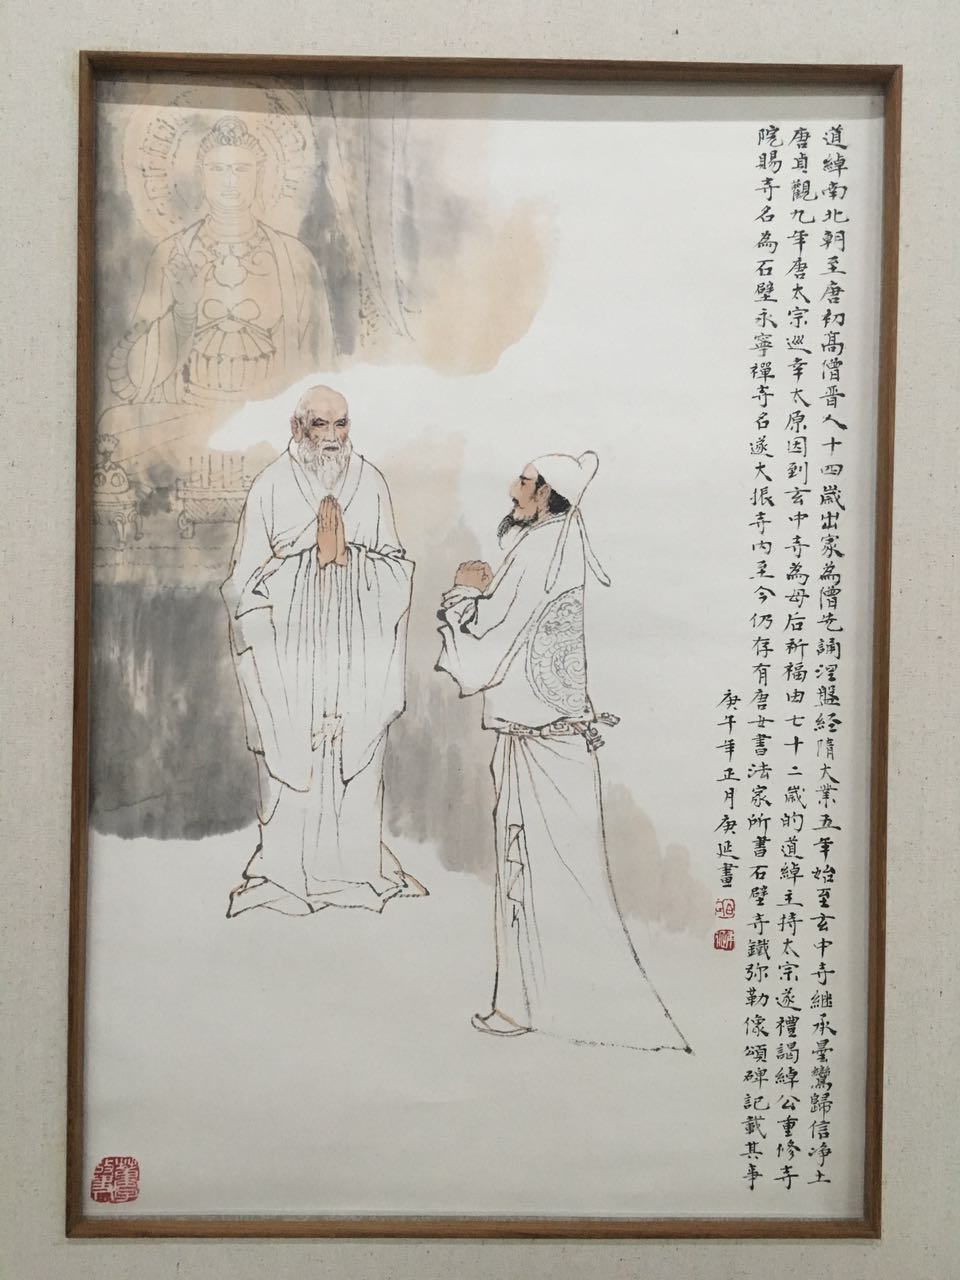 道綽南北朝至唐初高僧晋人十四歲出家為僧先誦涅盤經隋大業五年始至玄中寺繼承曇鸞歸信净土
唐貞觀九年唐太宗巡幸太原因到玄中寺為母后祈福由七十二歲的道綽主持太宗遂禮謁綽公重修寺
院賜寺名為石壁永寧禪寺名遂大振寺内至今仍存有唐女書法家所書石壁寺鐵弥勒像頌碑記載其事
庚午年正月庚延畫